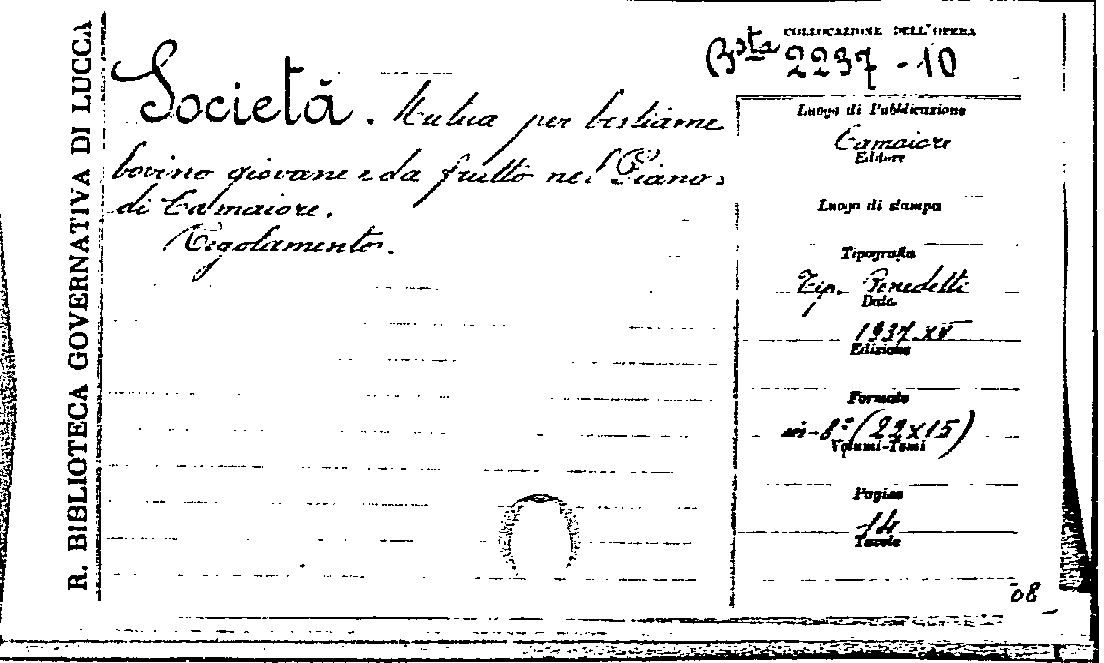 R. BIBLIOTECA GOVERNATIVA DI LUCCA
Società. Mutua per bestiame
bovino giovane e da frutto nel Piano
di Camaiore.
Regolamento.
COLLOCAZIONE DELL'OPERA
Bsta 2237-10
Luogo di Pubblicazione
Camaiore
Editore
Luogo di stampa
Tipografia
Tip. Benedetti
Data
1937-XV
Edizione
Formato
in-8° (22x15)
Volumi-Tomi
Pagine
14
Tavole
08